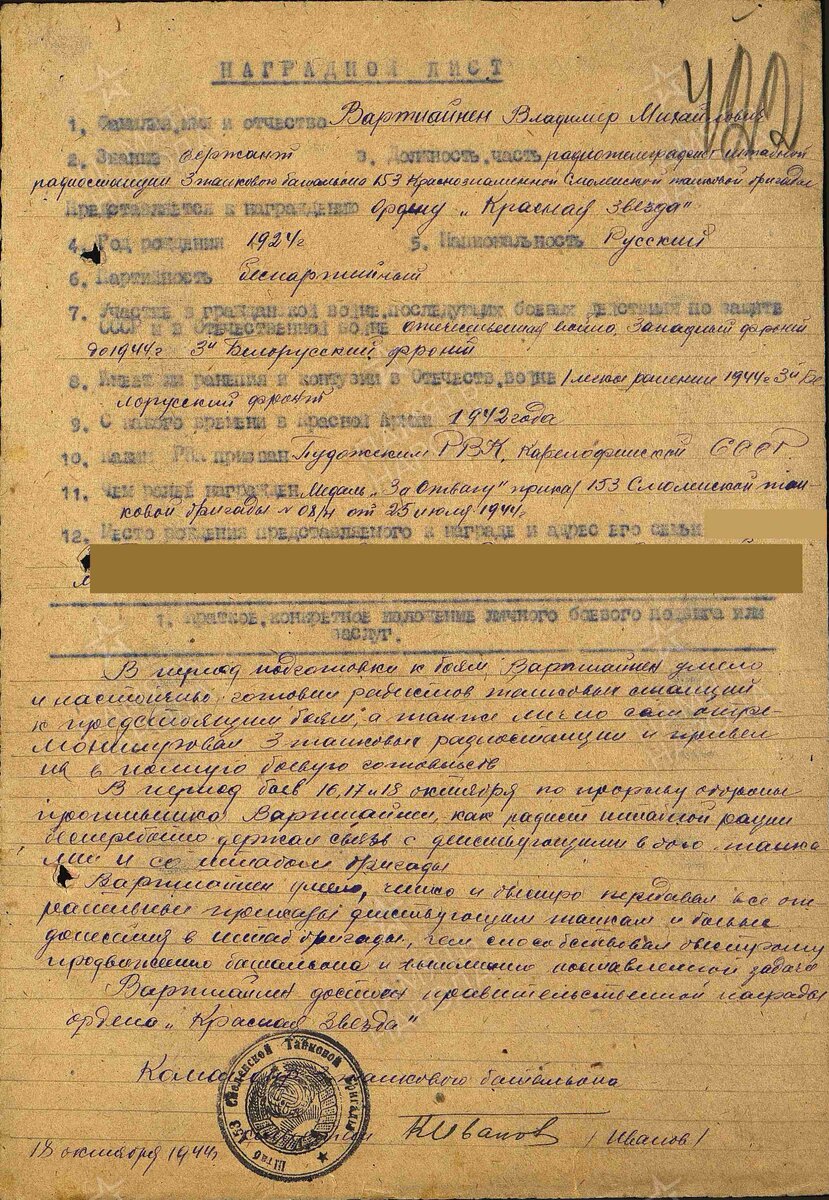 422
НАГРАДНОЙ ЛИСТ
1. Фамилия, имя и отчество Вартиайнен Владимир Михайлович
2. Звание сержант 3. Должность, часть радиотелеграфист штабной
радиостанции 3 танкового батальона 153 Краснознаменной Смоленской танковой бригады
Представляется к награждению Ордену "Красная Звезда"
4. Год рождения 1924 г 5. Национальность Русский
6. Партийность Беспартийный
7. Участие в гражданской войне, последующих боевых действиях по защите
СССР и в Отечественной войне отечественная война, Западный фронт
до 1944 г 3й Белорусский фронт
8. Имеет ли ранения и контузии в Отечеств, войне 1 легкое ранение 1944 г 3й Бе
лорусский фронт
9. С какого времени в Красной Армии 1942 года
10. Каким РВК призван Пудожским РВК, Карелофинской СССР
11. Чем ранее награжден Медаль "За Отвагу" приказ 153 Смоленской тан-
ковой бригады № 08/н от 25 июля 1944 г
12. Место рождения представляемого к награде и адрес его семьи
1. Краткое, конкретное изложение личного боевого подвига или
заслуг.
В период подготовки к боям, Вартиайнен умело
и настойчиво готовил радистов танковых станций
к предстоящим боям, а также лично сам отре-
монтировал 3 танковые радиостанции и привел
их в полную боевую готовность
В период боев 16, 17 и 18 октября по прорыву обороны
противника Вартиайнен, как радист штабной рации
бесперебойно держал связь с действующими в бою танка
ми и со штабом бригады
Вартиайнен умело, четко и быстро передавал все от
приказы действующим танкам и боевые
донесения в штаб бригады, чем способствовал быстрому
продвижению батальона и выполнению поставленной задачи
Вартиайнен достоен правительственной награды
ордена "Красная Звезда"
Командир танкового батальона
КИванов /Иванов/
18 октября 1944 г
Штаб 153 Смоленской Танковой Бригады
ПАМЯТЬ
НАРОДА